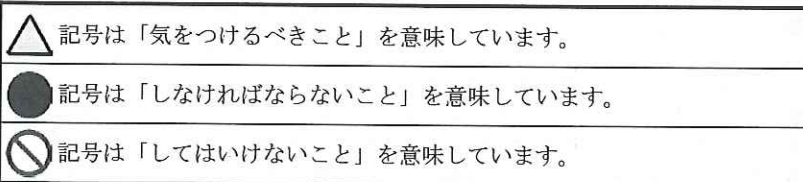 記号は「気をつけるべきこと」を意味しています。
記号は「しなければならないこと」を意味しています。
記号は「してはいけないこと」を意味しています。